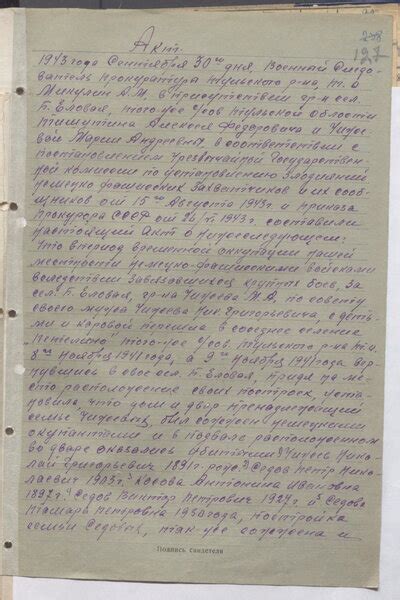 127
Акт.
1943 года Сентября 30го дня. Военный Следо-
ватель прокуратуры Тульского р-на,
Микулин А.М. в присутствии гр-н сел.
Б. Еловая, того-же с/сов Тульской области
Алексея Федоровича и Чицю-
вой Марии Андреевны в соответствии с
постановлением Чрезвычайной Государствен-
ной комиссии по установлению злодеяний
немецко фашистских захватчиков и их сооб-
щников от 15го Августа 1943г и приказа
Прокурора СССР от 1943г. составили
настоящий Акт о нижеследующем:
Что в период временной оккупации нашей
местности немецко-фашистскими войсками
вследствии завязавшихся крупных боев, за
сел. Б. Еловая, гр-ка М.А. по совету
своего мужа Ник Григорьевича с деть-
ми и коровой перешла в соседнее селение
того-же с/сов. Тульского р-на
8го Ноября 1941 года, а 9го Ноября 1941 года вер-
нувшись в свое сел. Б. Еловая, придя на ме-
сто расположение своих построек, уста-
новила, что дом и двор принадлежащий
семье был сожжен немецкими
оккупантами и в подвале расположенном
во дворе оказались убитыми: Нико-
лай Григорьевич 1891г. рожд. Седов Петр Нико-
лаевич 1903г. Косова Антонина Ивановна
1892г. Седов Виктор Петрович 1927г и Седова
Тамара Петровна 1930 года, постройка
семьи Седовых, так-же сожжена и
Подпись свидетеля